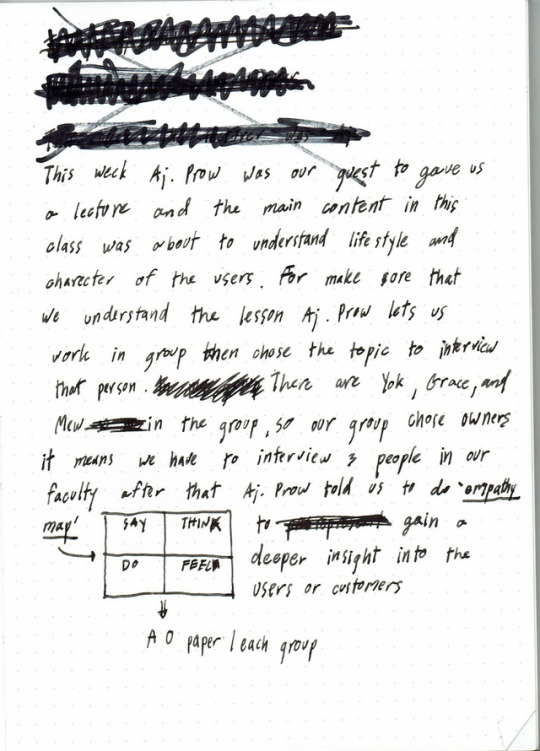 This week Aj. Prow was our guest to gave us
a lecture and the main content in this
class was about to understand lifestyle and
character of the users. For make sore that
we understand the lesson Aj. Prow lets us
work in group then chose the topic to interview
that person. There are Yok, Grace, and
Mew in the group, so our group chose owners
it means we have to interview 3 people in our
faculty after that Aj. Prow told us to do 'empathy
map' to gain a
deeper insight into the
users or customers
SAY THINK
DO FEEL
A0 paper / each group